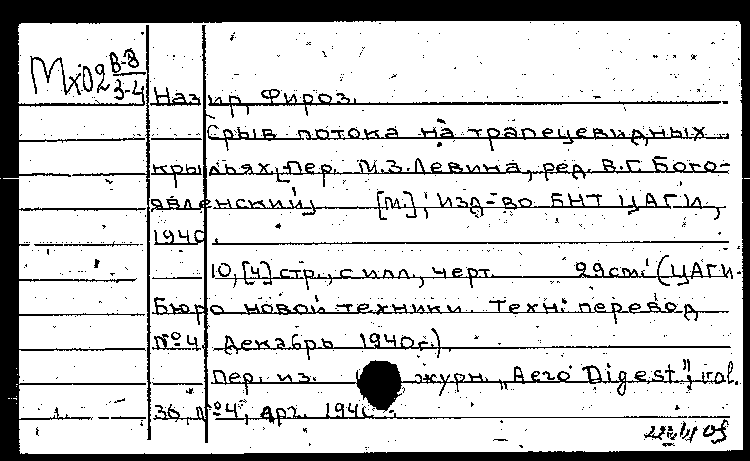 Мх02 В-8
3-4
Назир, Фироз.
Срыв потока на трапецевидных
крыльях, пер. М.З.Левина, ред. В.Г. Бого-
явленский [М.], Изд-во БНТ ЦАГИ,
1940.
10, [4] стр., с илл., черт. 29см. (ЦАГИ.
Бюро новой техники. Техн. перевод
№4. Декабрь 1940г.)
Пер. из. журн. „Aero Digest", vol.
36, №4, apr. 1940